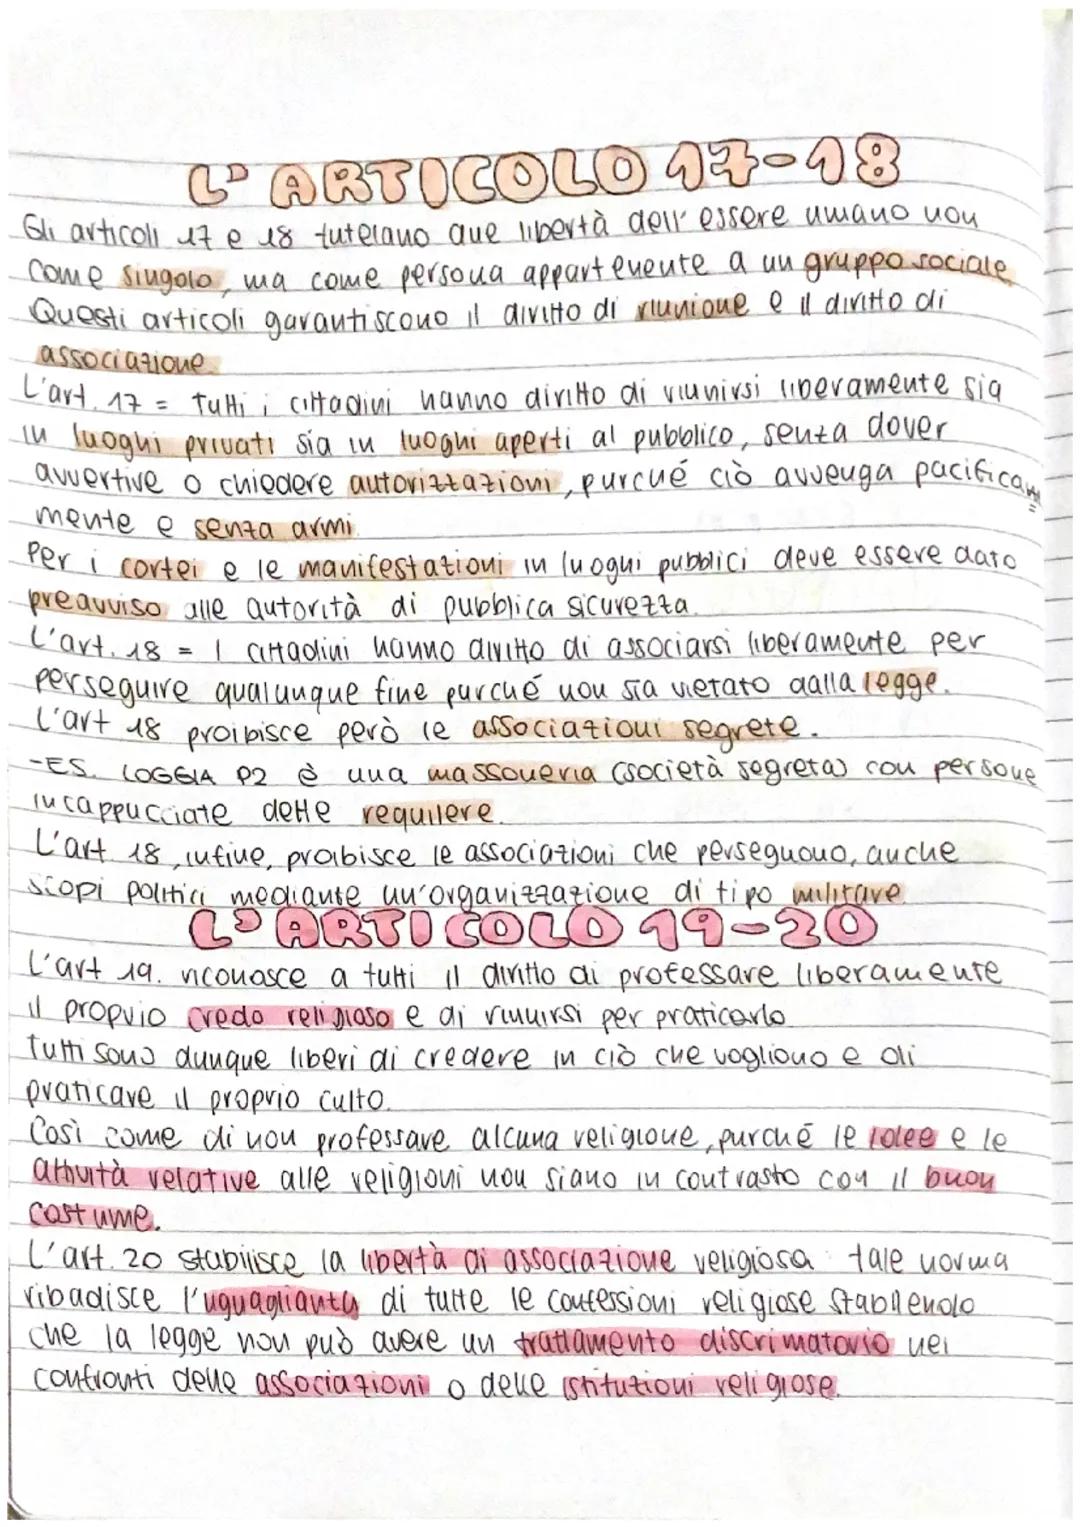 L'ARTICOLO 17-18
Gli articoli 17 e 18 tutelano due libertà dell'essere umano non
come singolo, ma come persona appartenente a un gruppo sociale
Questi articoli garantiscono il diritto di riunione e il diritto di
associazione.
L'art. 17 = Tutti i cittadini hanno diritto di riunirsi liberamente sia
in luoghi privati sia in luoghi aperti al pubblico, senza dover
avvertire o chiedere autorizzazioni, purché ciò avvenga pacifica
mente e senza armi.
Per i cortei e le manifestazioni in luoghi pubblici deve essere dato
preavviso alle autorità di pubblica sicurezza.
L'art. 18 = I cittadini hanno diritto di associarsi liberamente per
perseguire qualunque fine purché non sia vietato dalla legge.
L'art 18 proibisce però le associazioni segrete.
-ES. LOGGIA P2 è una massoneria (società segreta) con persone
incappucciate dette requilere.
L'art. 18, infine, proibisce le associazioni che perseguono, anche
scopi politici mediante un'organizzazione di tipo militare.
L'ARTICOLO 19-20
L'art 19. riconosce a tutti il diritto di professare liberamente
il proprio credo religioso e di riunirsi per praticarlo.
Tutti sono dunque liberi di credere in ciò che vogliono e di
praticare il proprio culto.
Così come di non professare alcuna religione, purché le idee e le
attività relative alle religioni non siano in contrasto con il buon
costume.
L'art. 20 stabilisce la libertà di associazione religiosa tale norma
ribadisce l'uguaglianza di tutte le confessioni religiose stabilendo
che la legge non può avere un trattamento discrimatorio nei
confronti delle associazioni o delle istituzioni religiose.